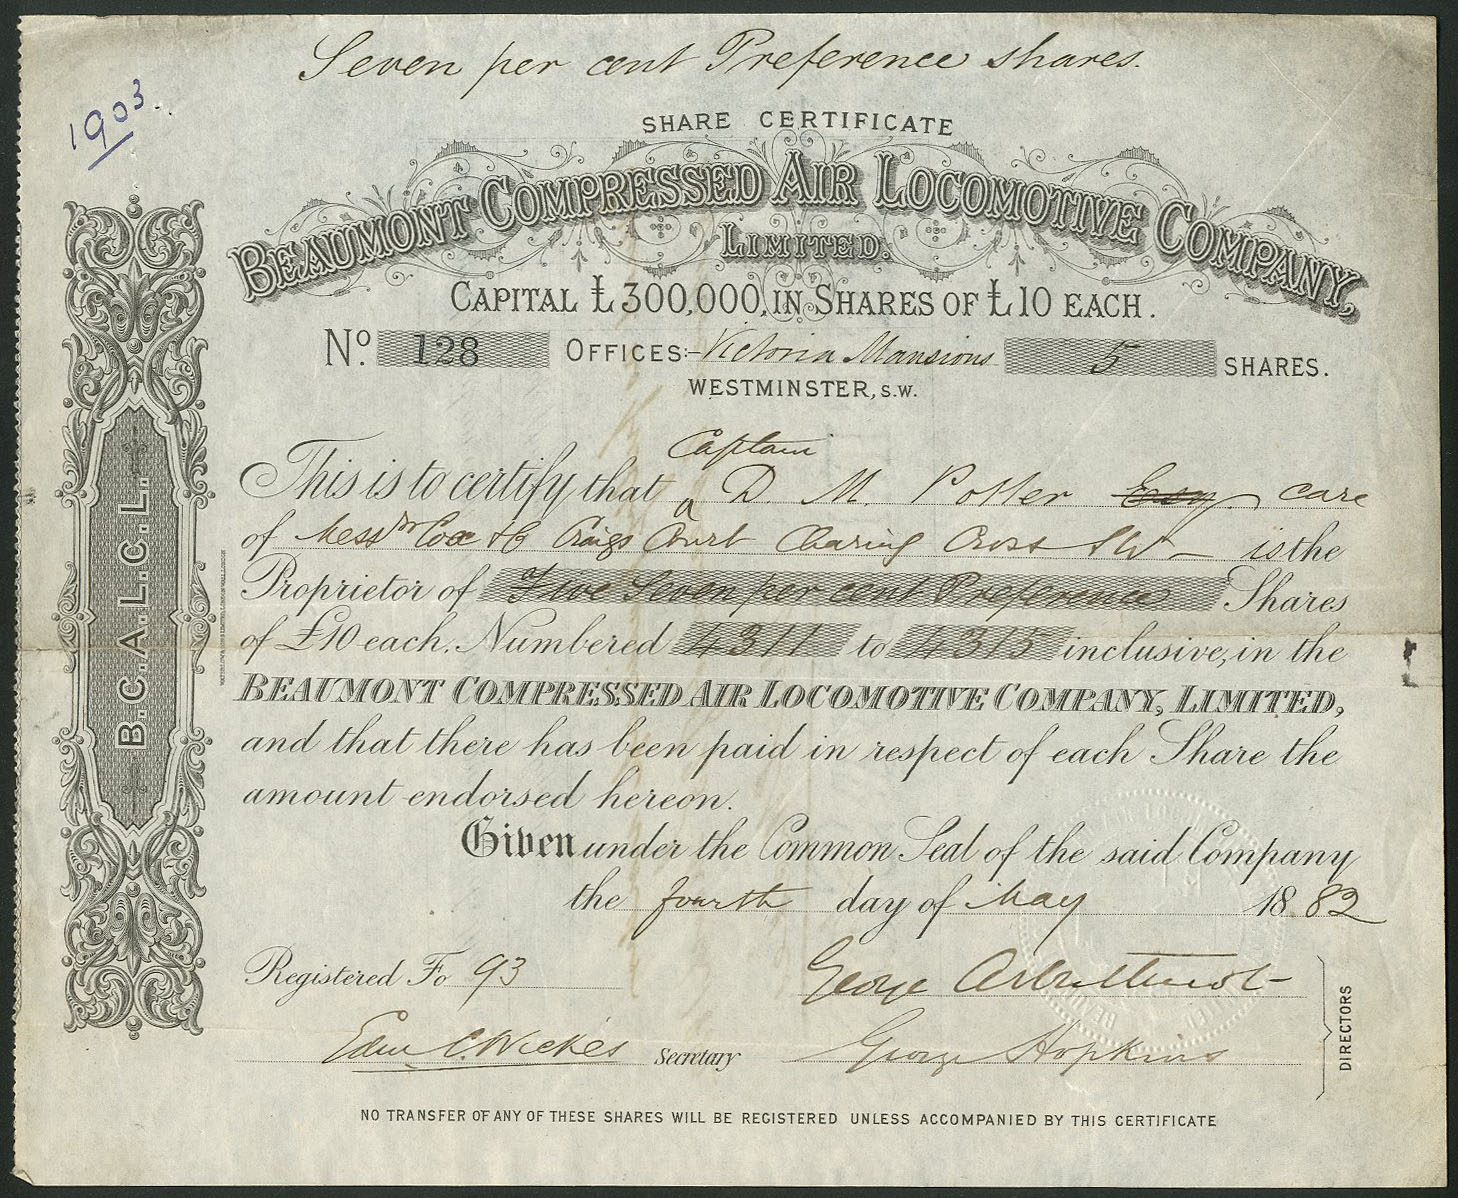 Seven per cent Preference shares.
1903.
SHARE CERTIFICATE
BEAUMONT COMPRESSED AIR LOCOMOTIVE COMPANY,
LIMITED.
CAPITAL £300,000, IN SHARES OF £10 EACH.
No. 128 OFFICES:- Victoria Mansions 5 SHARES.
WESTMINSTER, S.W.
Captain
This is to certify that D. M. Potter Esq. care
of Messrs Cox & Co Craigs Court Charing Cross SW — is the
Proprietor of Five Seven per cent Preference Shares
of £10 each. Numbered 4311 to 4315 inclusive, in the
BEAUMONT COMPRESSED AIR LOCOMOTIVE COMPANY, LIMITED,
and that there has been paid in respect of each Share the
amount endorsed hereon.
Given under the Common Seal of the said Company
the fourth day of May 1882
Registered Fo 93
George Arbuthnot
Edw C. Wickes Secretary George Hopkins
DIRECTORS
NO TRANSFER OF ANY OF THESE SHARES WILL BE REGISTERED UNLESS ACCOMPANIED BY THIS CERTIFICATE
B.C.A.L.C.L.